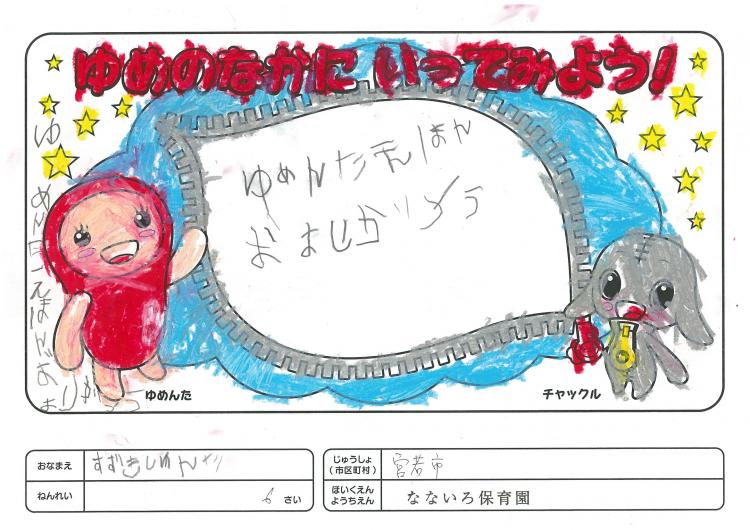 ゆめのなかに いってみよう!
ゆめんたえほん
おましかりとう
ゆめんたえほんおありがとう
ゆめんた
チャックル
おなまえ
じゅうしょ
(市区町村)
宮若市
ねんれい
6 さい
ほいくえん
ようちえん
なないろ保育園